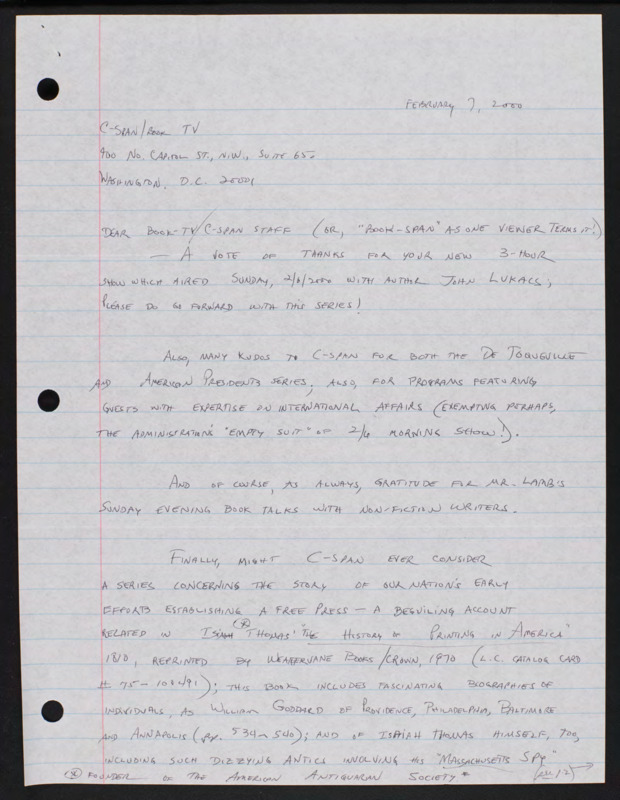 February 7, 2000
C-Span/Book TV
400 No. Capitol St., N.W., Suite 650
Washington, D.C. 20001
Dear Book-TV/C-Span Staff (or, "Book-Span" as one viewer terms it!)
— A vote of thanks for your new 3-hour
show which aired Sunday, 2/6/2000 with author John Lukacs;
Please do go forward with this series!
Also, many kudos to C-Span for both the De Toqueville
and American Presidents series; also, for programs featuring
guests with expertise on international affairs (exempting perhaps,
the administration's "empty suit" of 2/6 morning show!).
And of course, as always, gratitude for Mr. Lamb's
Sunday evening book talks with non-fiction writers.
Finally, might C-Span ever consider
a series concerning the story of our nation's early
efforts establishing a free press — a beguiling account
related in Isaiah (*) Thomas' "The History of Printing in America"
1810, reprinted by Weathervane Books/Crown, 1970 (L.C. Catalog Card
# 75-); this book includes fascinating biographies of
individuals, as William Goddard of Providence, Philadelphia, Baltimore
and Annapolis (pp. 534-540); and of Isaiah Thomas himself, too,
including such dizzying antics involving his "Massachusetts Spy"
(*) Founder of the American Antiquarian Society *